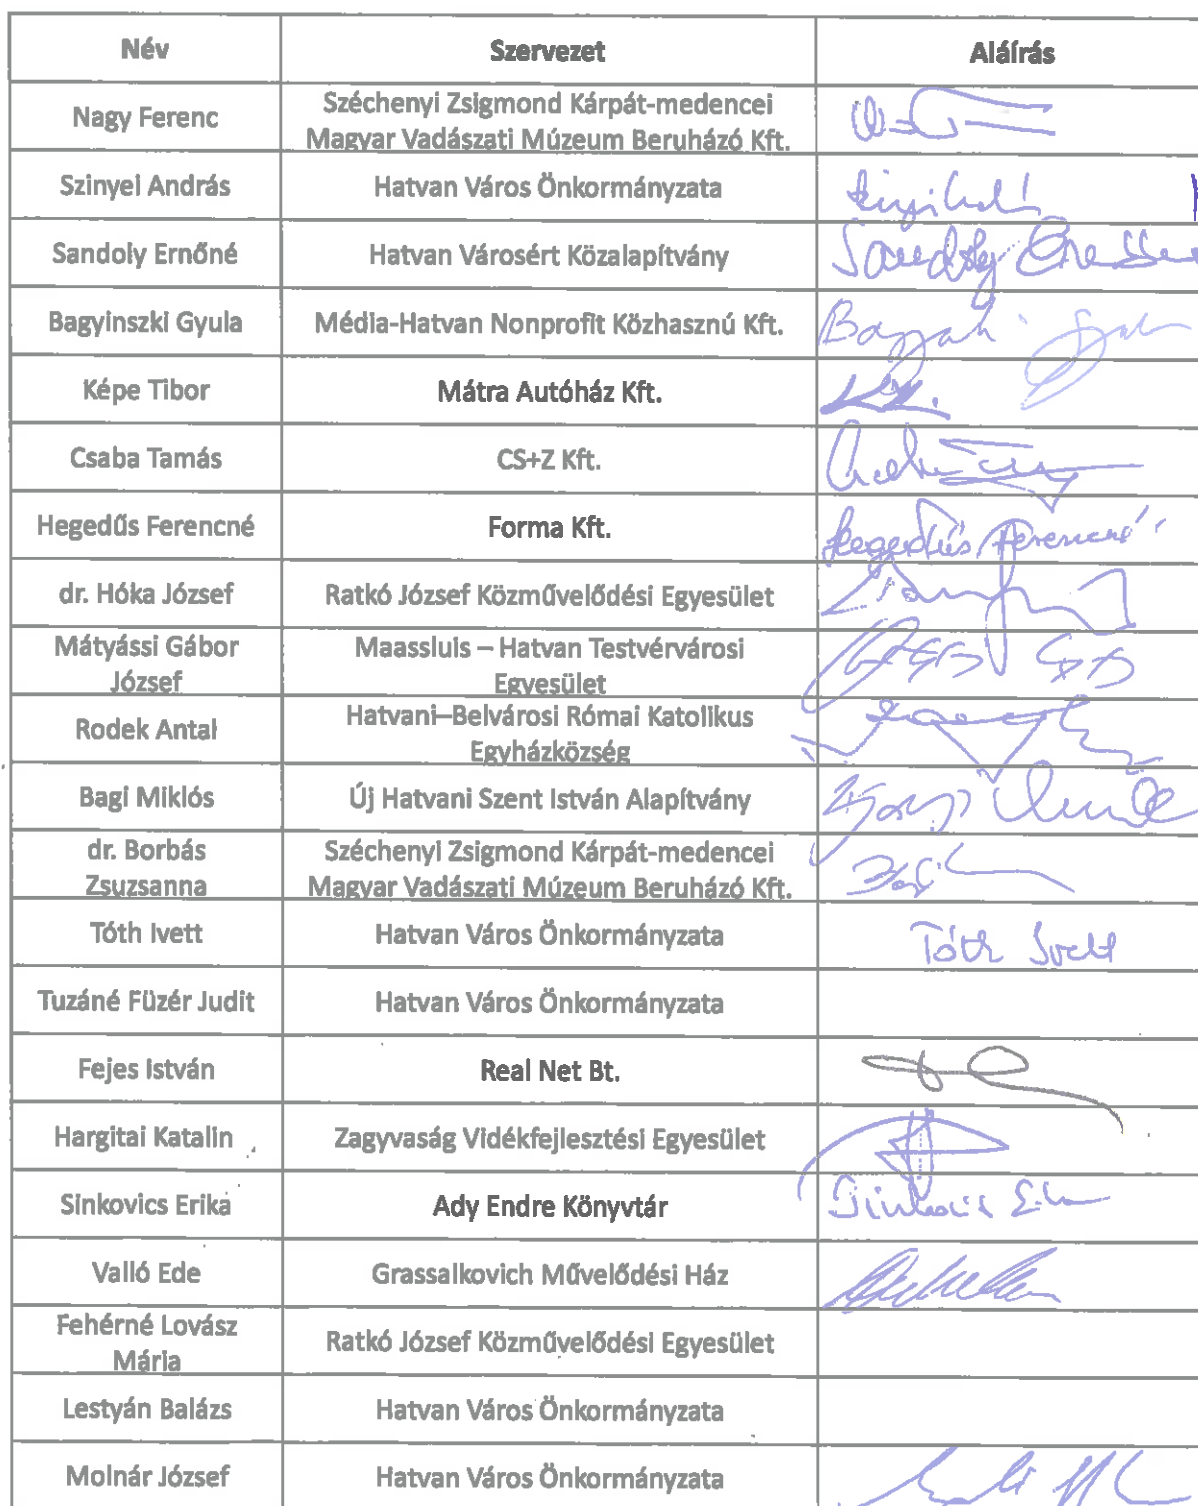 Név Szervezet Aláírás
Nagy Ferenc Széchenyi Zsigmond Kárpát-medencei
Magyar Vadászati Múzeum Beruházó Kft.
Szinyei András Hatvan Város Önkormányzata
Sandoly Ernőné Hatvan Városért Közalapítvány Sandoly Ernőné
Bagyinszki Gyula Média-Hatvan Nonprofit Közhasznú Kft.
Képe Tibor Mátra Autóház Kft.
Csaba Tamás CS+Z Kft.
Hegedűs Ferencné Forma Kft. Hegedűs Ferencné
dr. Hóka József Ratkó József Közművelődési Egyesület
Mátyássi Gábor Maassluis – Hatvan Testvérvárosi
József Egyesület
Rodek Antal Hatvani–Belvárosi Római Katolikus
Egyházközség
Bagi Miklós Új Hatvani Szent István Alapítvány
dr. Borbás Széchenyi Zsigmond Kárpát-medencei
Zsuzsanna Magyar Vadászati Múzeum Beruházó Kft.
Tóth Ivett Hatvan Város Önkormányzata Tóth Ivett
Tuzáné Füzér Judit Hatvan Város Önkormányzata
Fejes István Real Net Bt.
Hargitai Katalin Zagyvaság Vidékfejlesztési Egyesület
Sinkovics Erika Ady Endre Könyvtár
Valló Ede Grassalkovich Művelődési Ház
Fehérné Lovász Ratkó József Közművelődési Egyesület
Mária
Lestyán Balázs Hatvan Város Önkormányzata
Molnár József Hatvan Város Önkormányzata